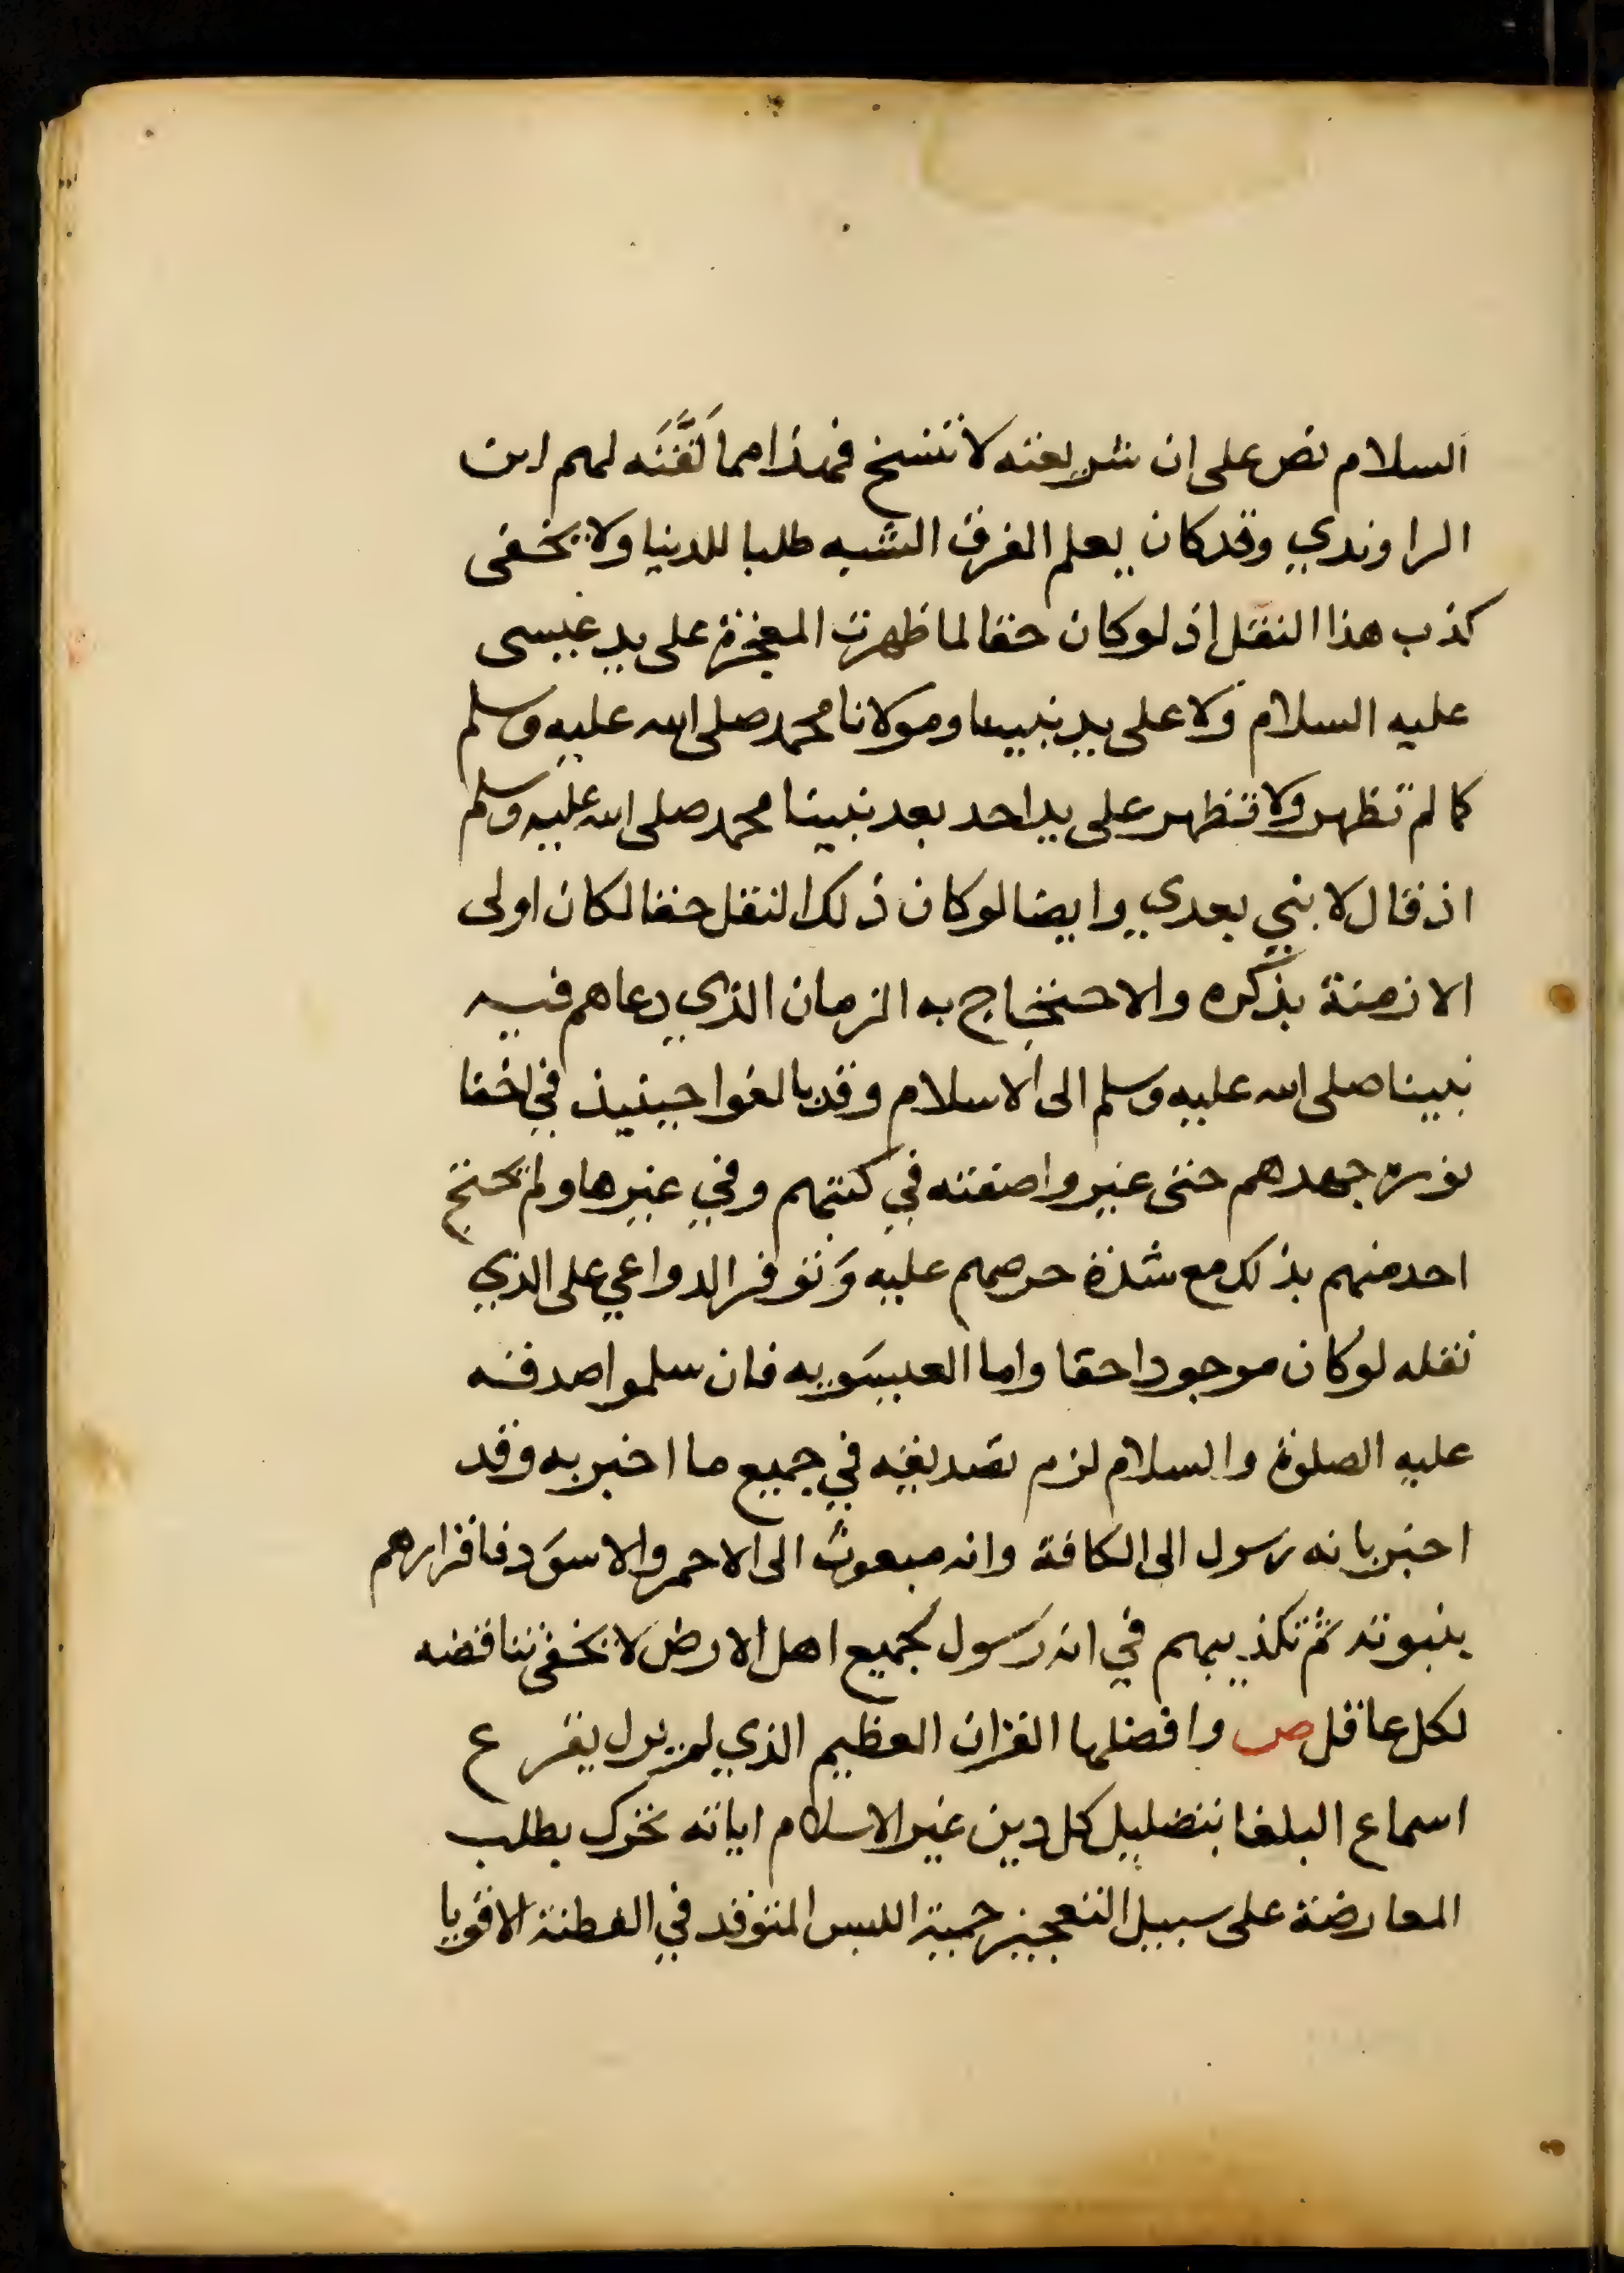 السلام نص على ان شريعته لا تنسخ فهذا مما لَقَّنَه لهم ابن
الراوندي وقد كان يعلم الفرق الشبه طلبا للدنيا ولا يخفى
كذب هذا النقل اذ لو كان حقا لما ظهرت المعجزة على يد عيسى
عليه السلام ولا على يد نبينا ومولانا محمد صلى الله عليه وسلم
كما لم تظهر ولا تظهر على يد احد بعد نبينا محمد صلى الله عليه وسلم
اذ قال لا نبي بعدي وايضا لو كان ذلك النقل حقا لكان اولى
الازمنة بذكره والاحتجاج به الزمان الذي دعاهم فيه
نبينا صلى الله عليه وسلم الى الاسلام وقد بالغوا حينيذ في اخفا
نوره جهدهم حتى غيروا صفته في كتبهم وفي غيرها ولم يحتج
احد منهم بذلك مع شدة حرصهم عليه وَتوفر الدواعي على الذي
نقله لو كان موجودا حقا واما العيسَويه فان سلموا صدقه
عليه الصلوة والسلام لزم تصديقه في جميع ما اخبر به وقد
اخبر بانه رسول الى الكافة وانه مبعوث الى الاحمر والاسوَد فاقرارهم
بنبوته ثم تكذيبهم في انه رَسول لجميع اهل الارض لا يخفى تناقضه
لكل عاقل ص وافضلها القران العظيم الذي لم يزل يقرع
اسماع البلغا بتضليل كل دين غير الاسلام اياته تحرك بطلب
المعارضة على سبيل التعجيز حمية اللسن المتوقد في الفطنة الاقويا